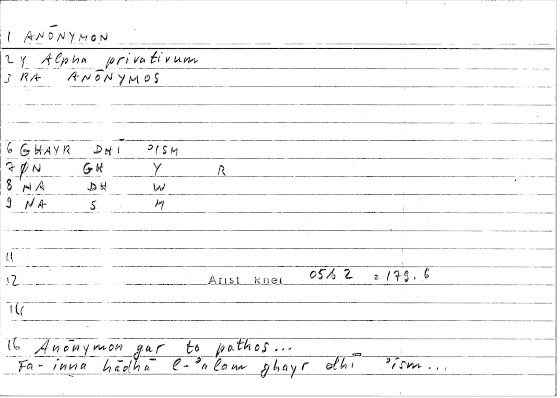 1 ANŌNYMON
2 Y Alpha privativum
3 RA ANŌNYMOS
6 GHAYR DHĪ ʾISM
7 ØN GH Y R
8 NA DH W
9 NA S M
11
12 Arist rhet 05b2 = 179.6
14
16 Anōnymon gar to pathos...
Fa-inna hādhā l-ʾalam ghayr dhī ʾism...